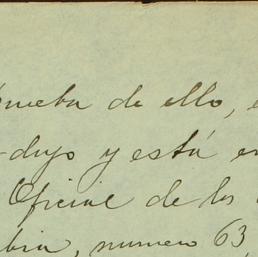 prueba de ello,
-dujo y está en
Oficial de los
bia, numero 63,